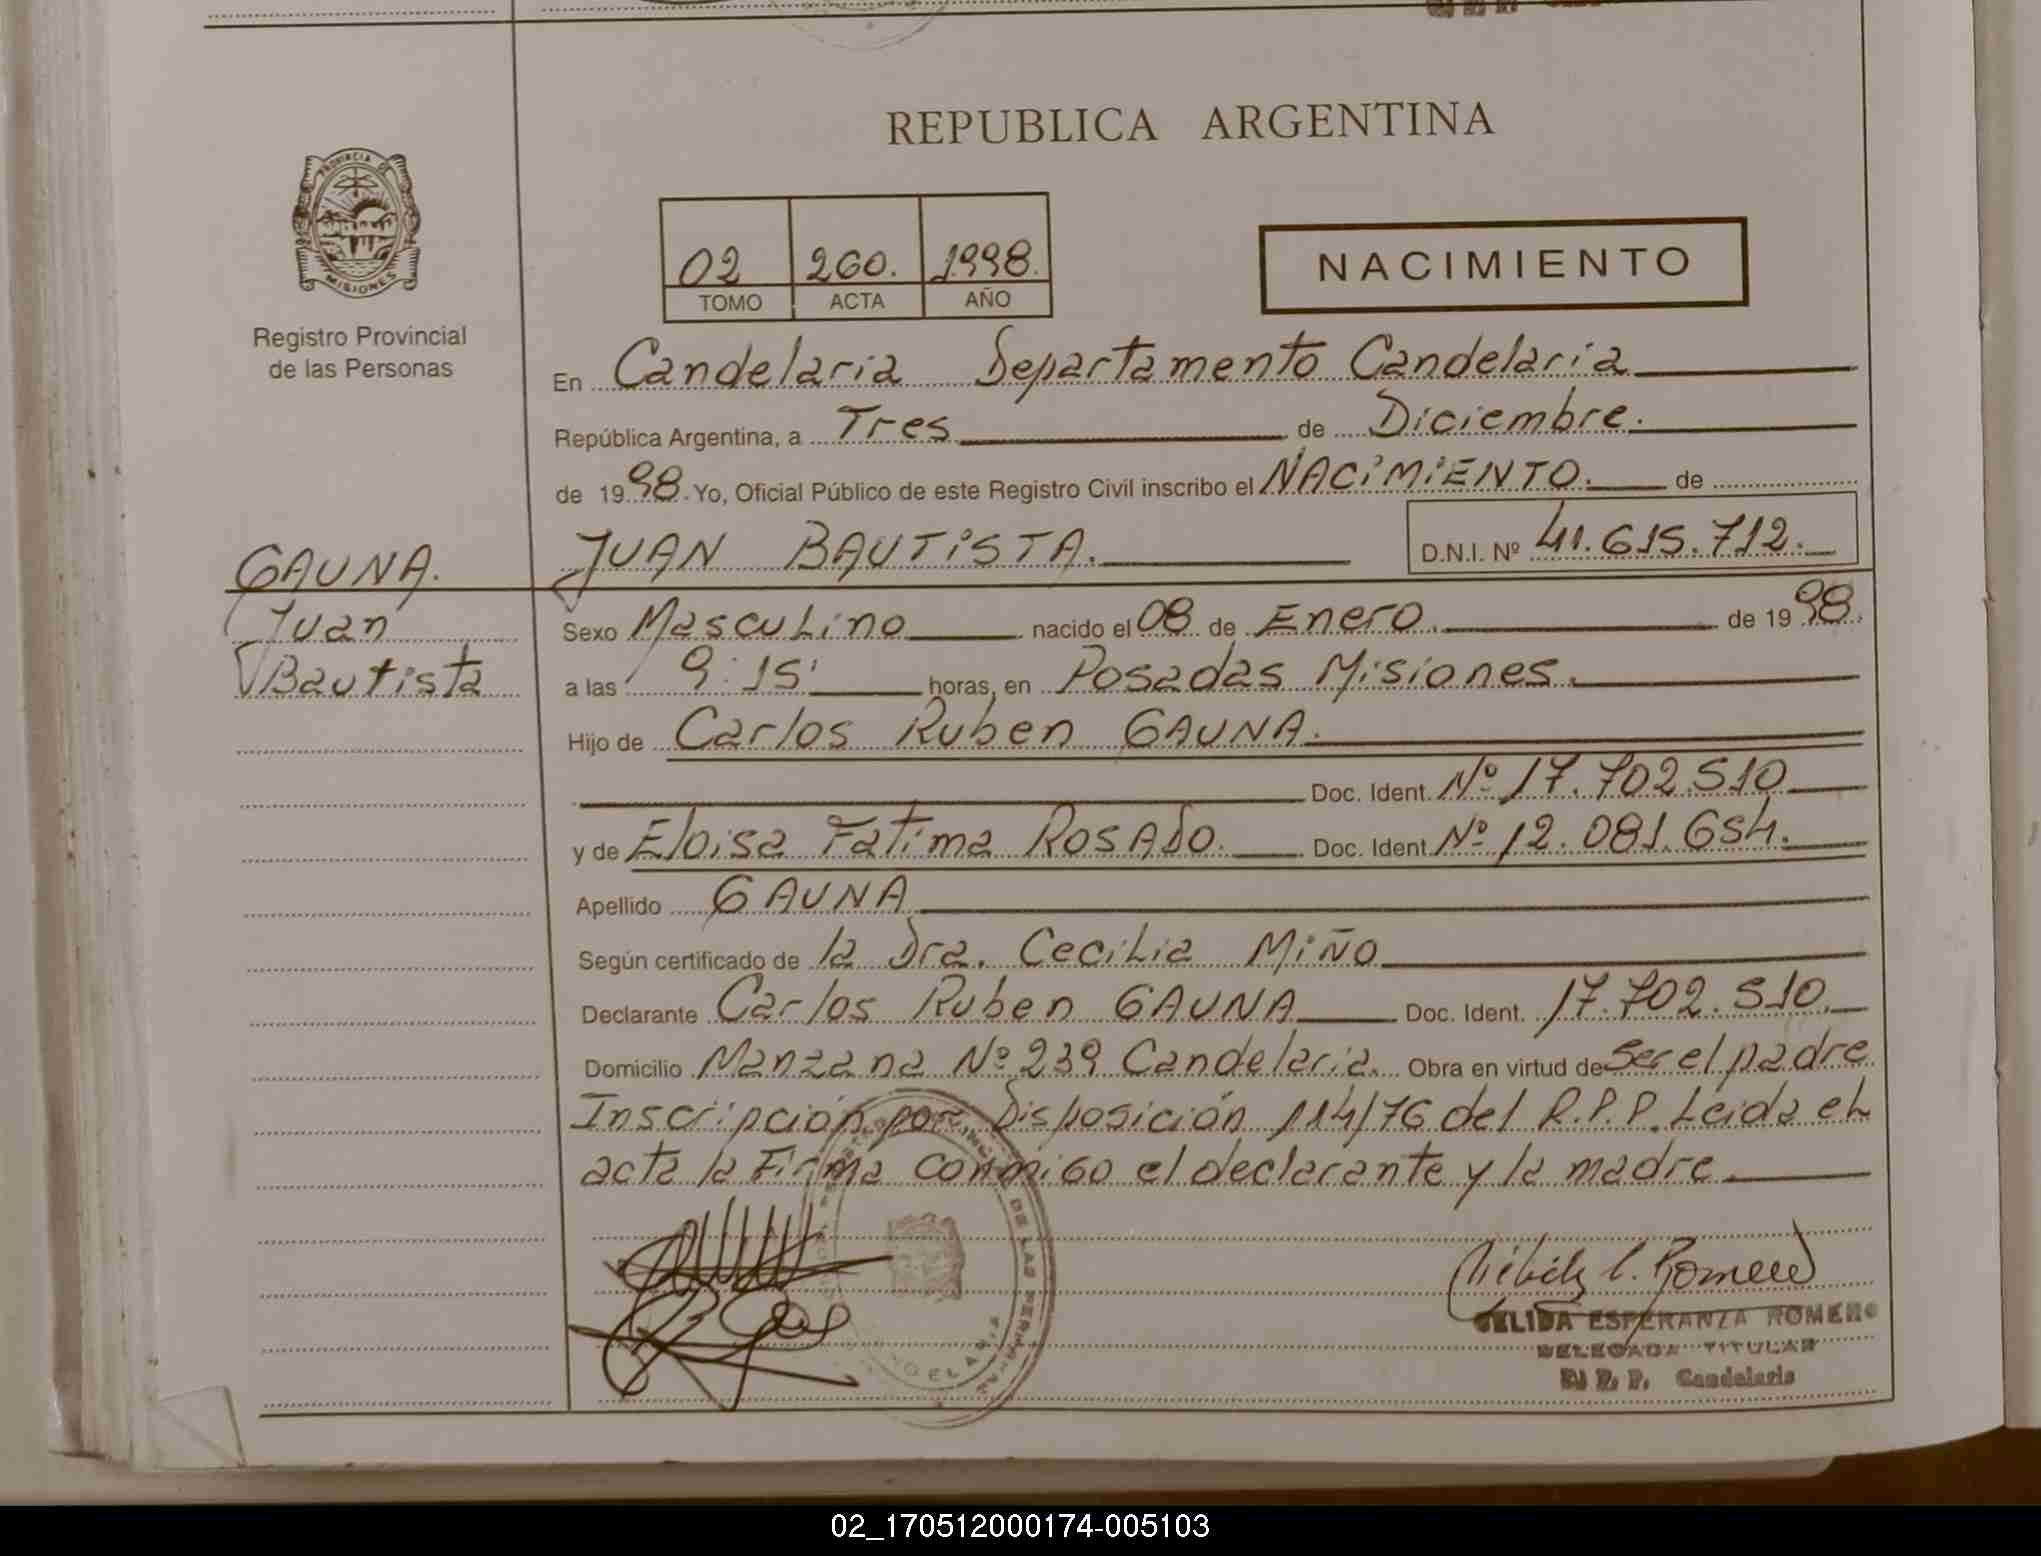 REPUBLICA ARGENTINA
PROVINCIA DE
MISIONES
Registro Provincial
de las Personas
02 260. 1998.
TOMO ACTA AÑO
NACIMIENTO
En Candelaria Departamento Candelaria
República Argentina, a Tres de Diciembre.
de 1998. Yo, Oficial Público de este Registro Civil inscribo el NACIMIENTO. de
JUAN BAUTISTA. D.N.I. Nº 41.615.712.
GAUNA.
Juan
Bautista
Sexo Masculino nacido el 08 de Enero. de 1998.
a las 9:15' horas, en Posadas Misiones.
Hijo de Carlos Ruben GAUNA.
Doc. Ident. Nº 17.702.510
y de Eloisa Fatima ROSADO. Doc. Ident. Nº 12.081.654.
Apellido GAUNA
Según certificado de la Dra. Cecilia MIÑO
Declarante Carlos Ruben GAUNA Doc. Ident. 17.702.510.
Domicilio Manzana Nº 239 Candelaria. Obra en virtud de Ser el padre
Inscripción por Disposición 114/76 del R.P.P. Leida el
acta la Firma conmigo el declarante y la madre.
DE LAS PERSONAS
CANDELARIA
ESPERANZA ROMERO
DELEGADA TITULAR
R. P. P. Candelaria
02_170512000174-005103